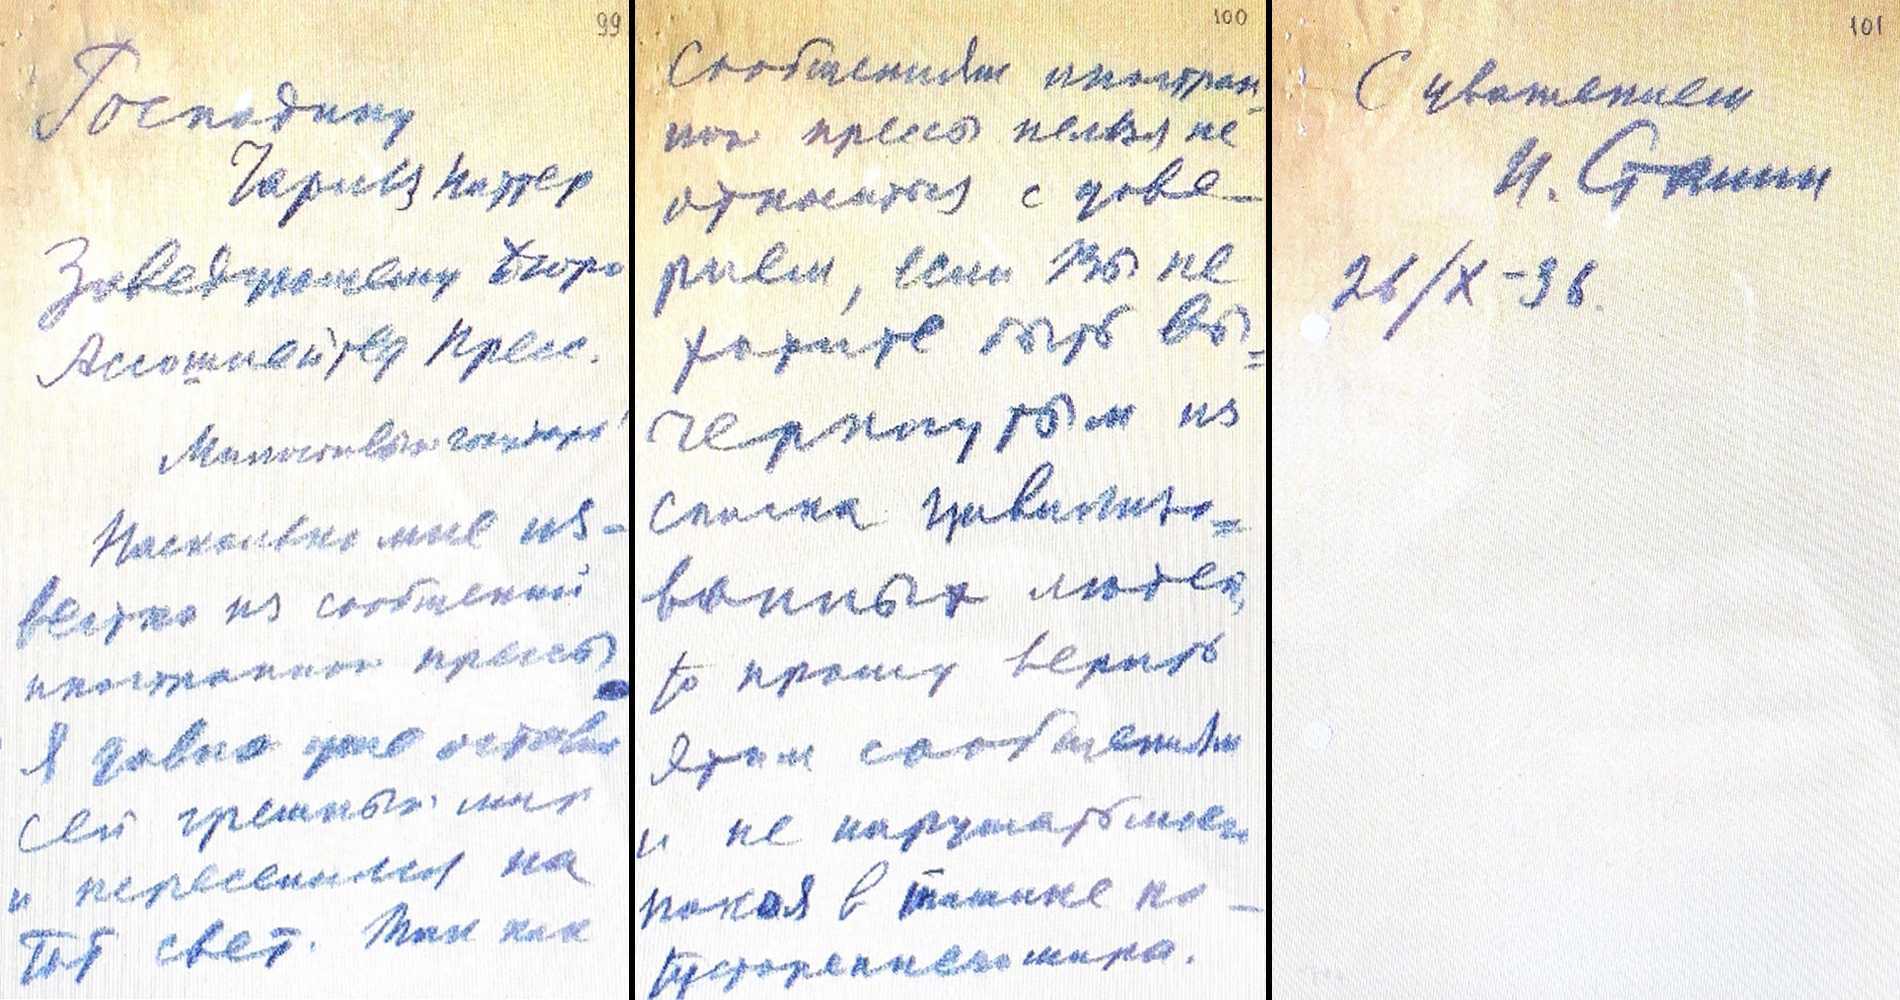 99
Господину
Чарльз Наттер
Заведующему Бюро
Ассошиейтед Пресс.
Милостивый государь!
Насколько мне из-
вестно из сообщений
иностранной прессы
я давно уже оставил
сей грешный мир
и переселился на
тот свет. Так как
100
Сообщениям иностран-
ной прессы нельзя не
относиться с дове-
рием, если Вы не
хотите быть вы=
черкнутым из
списка цивилизо=
ванных людей,
то прошу верить
этим сообщениям
и не нарушать моего
покоя в тишине по-
тустороннего мира.
101
С уважением
И. Сталин
26/X-36.